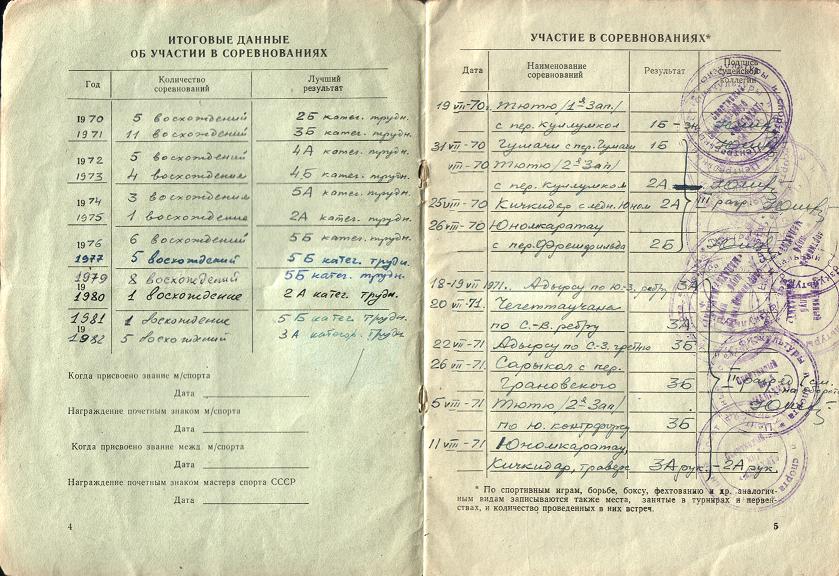 ИТОГОВЫЕ ДАННЫЕ
ОБ УЧАСТИИ В СОРЕВНОВАНИЯХ
Год Количество соревнований Лучший результат
1970 5 восхождений 2Б катег. трудн.
1971 11 восхождений 3Б катег. трудн.
1972 5 восхождений 4А катег. трудн.
1973 4 восхождения 4Б катег. трудн.
1974 3 восхождения 5А катег. трудн.
1975 1 восхождение 2А катег. трудн.
1976 6 восхождений 5Б катег. трудн.
1977 5 восхождений 5Б катег. трудн.
1979 8 восхождений 5Б катег. трудн.
1980 1 восхождение 2А катег. трудн.
1981 1 восхождение 5Б катег. трудн.
1982 5 восхождений 3А категор. трудн.
Когда присвоено звание м/спорта
Дата
Награждение почетным знаком м/спорта
Дата
Когда присвоено звание межд. м/спорта
Дата
Награждение почетным знаком мастера спорта СССР
Дата
4
УЧАСТИЕ В СОРЕВНОВАНИЯХ*
Дата Наименование соревнований Результат Подпись судейской коллегии
19 VII-70г. Тютю /1ая Зап./
с пер. Куллумкол 1Б
31 VII-70 Гумачи с пер. Гумачи 1Б
VIII-70 Тютю /2ая Зап/
с пер. Куллумкол 2А
25 VIII-70 Кичкидар с ледн. Юном 2А III разр.
26 VIII-70 Юномкаратау
с пер. Фрешфильда 2Б
18-19 VII 1971. Адырсу по Ю-З. ребру 3А
20 VII-71. Чегеттаучана
по С-В. ребру 3А
22 VII-71 Адырсу по С-З. гребню 3Б
26 VII-71 Сарыкол с пер.
Грановского 3Б II разряд (см. на обороте)
5 VIII-71 Тютю /2ая Зап/
по ю. контрфорсу 3Б
11 VIII-71 Юномкаратау,
Кичкидар, траверс 3А рук. - 2А рук.
* По спортивным играм, борьбе, боксу, фехтованию и др. аналогич-
ным видам записываются также места, занятые в турнирах и первен-
ствах, и количество проведенных в них встреч.
5